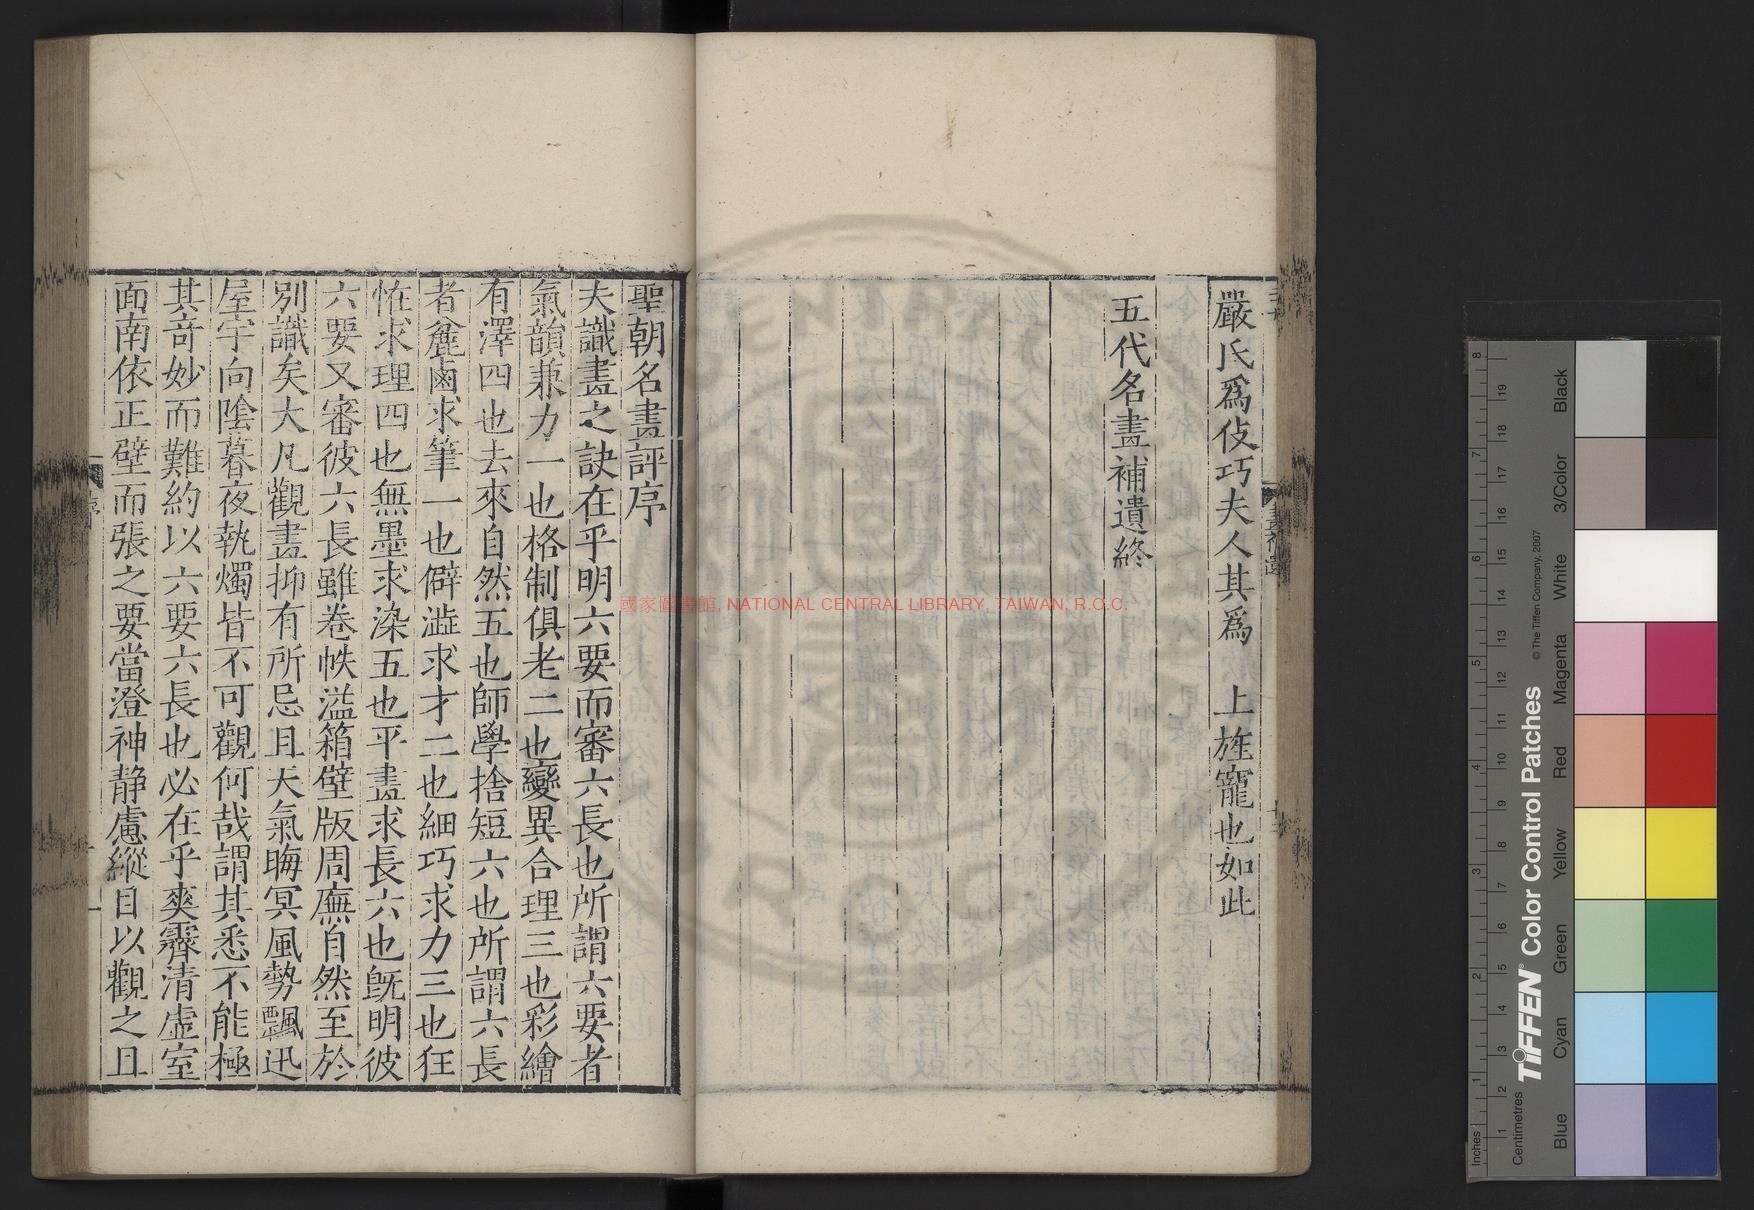 嚴氏爲伎巧夫人其爲　上旌寵也如此
五代名畫補遺終
聖朝名畫評序
夫識畫之訣在乎明六要而審六長也所謂六要者
氣韻兼力一也格制俱老二也變異合理三也彩繪
有澤四也去來自然五也師學捨短六也所謂六長
者麄鹵求筆一也僻澁求才二也細巧求力三也狂
恠求理四也無墨求染五也平畫求長六也旣明彼
六要又審彼六長雖卷帙溢箱壁版周廡自然至於
別識矣大凡觀畫抑有所忌且天氣晦冥風勢飄迅
屋宇向陰暮夜執燭皆不可觀何哉謂其悉不能極
其竒妙而難約以六要六長也必在乎爽霽清虛室
面南依正壁而張之要當澄神静慮縱目以觀之且
序
一
國家圖書館, NATIONAL CENTRAL LIBRARY, TAIWAN, R.O.C.
Inches
Centimetres
TIFFEN® Color Control Patches
© The Tiffen Company, 2007
Blue
Cyan
Green
Yellow
Red
Magenta
White
3/Color
Black